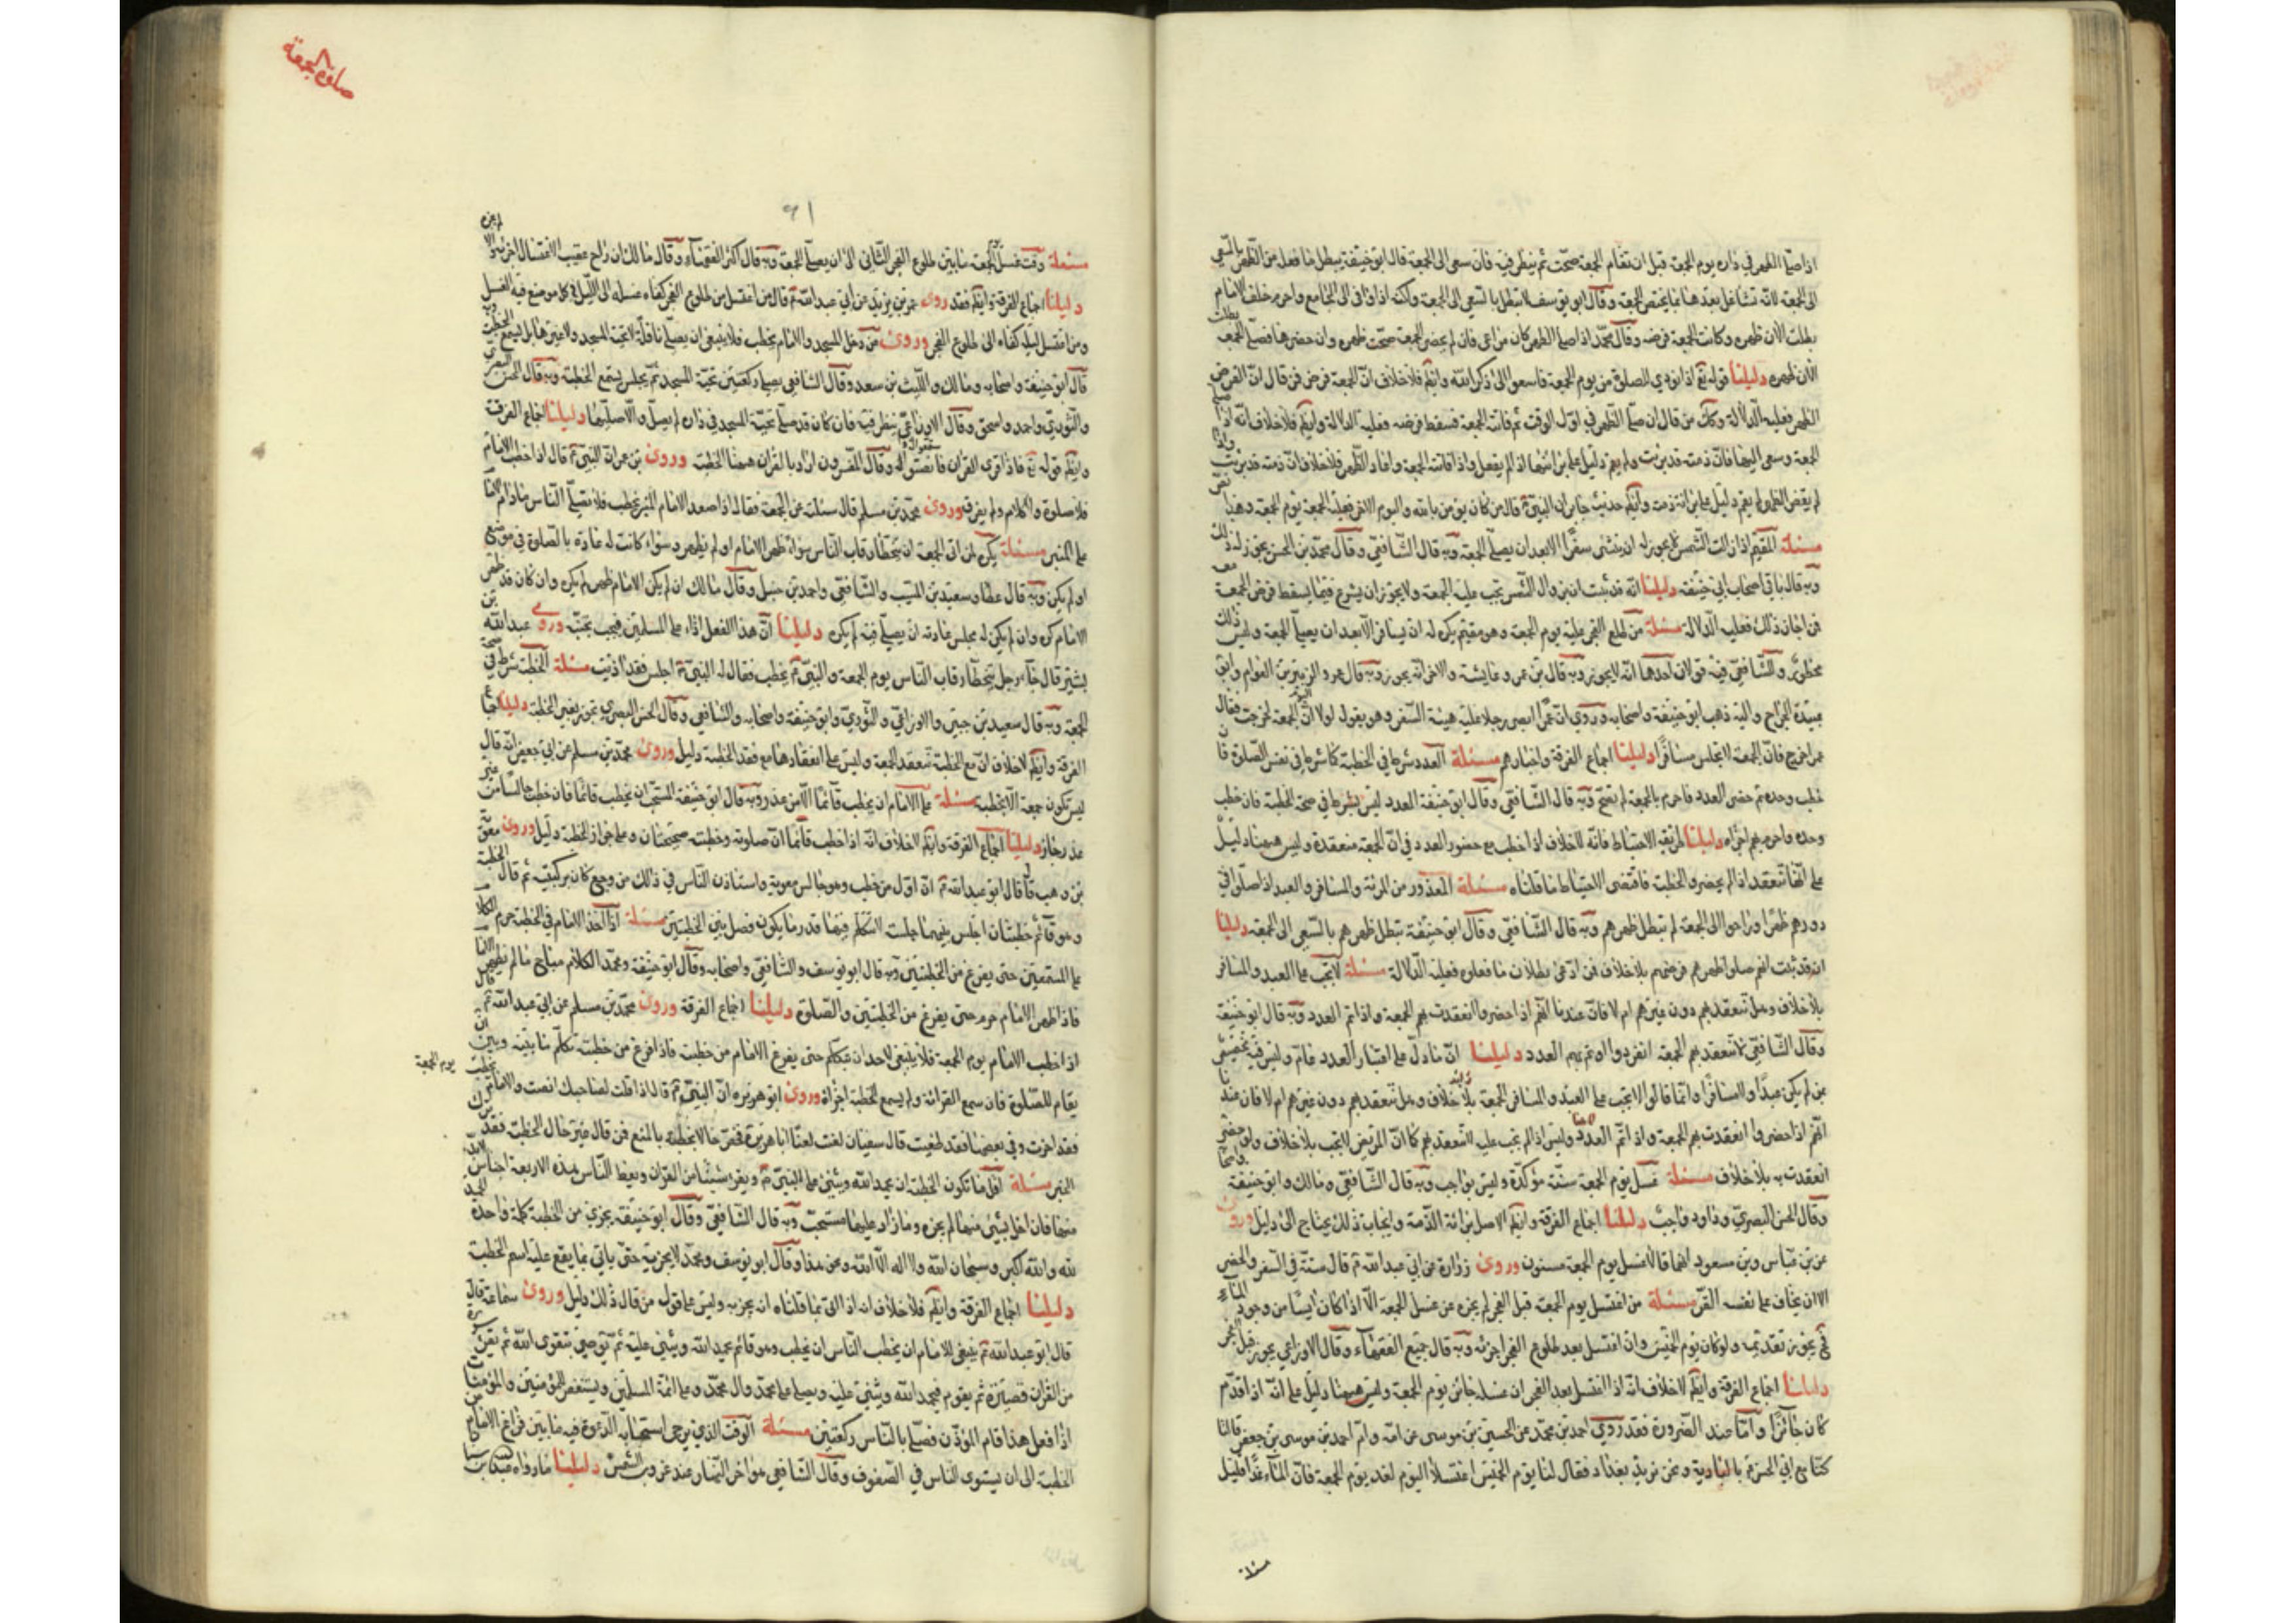 اذا صلى الظهر في داره يوم الجمعة قبل ان تقام الجمعة صحت ثم ينظر فيه فان سعى الى الجمعة قال ابو حنيفة يبطل ما فعل من الظهر بالسعي
الى الجمعة لانه تشاغل بعدها بما يختص الجمعة وقال ابو يوسف لا تبطل بالسعي الى الجمعة ولكنه اذا وافى الى الجامع واحرم خلف الامام
بطلت الان ظهره وكانت الجمعة فرضه وقال محمد اذا صلى الظهر كان مراعى فان لم يحضر الجمعة صحت ظهره وان حضرها فصلى الجمعة بطلت
الان ظهره دليلنا قوله تع اذا نودي للصلوة من يوم الجمعة فاسعوا الى ذكر الله وايضا فلا خلاف ان الجمعة فرض فمن قال ان الفرض
الظهر فعليه الدلالة وكك من قال ان صلى الظهر في اول الوقت ثم فاتته الجمعة فسقط فرضه فعليه الدلالة وايضا فلا خلاف انه اذا صلى
الجمعة وسعى اليها فان ذمته قد برئت ولم يقم دليل على برائتها اذا لم يفعل واذا فاتته الجمعة واعاد الظهر فلا خلاف ان ذمته قد برئت واذا
لم يقض الظهر لم يقم دليل على برائة ذمته وايضا حديث جابر ان النبي قال من كان يؤمن بالله واليوم الاخر فعليه الجمعة يوم الجمعة وهذا نص
مسئلة المقيم اذا زالت الشمس لم يجوز له ان ينشئ سفرا الا بعد ان يصلي الجمعة وبه قال الشافعي وقال محمد بن الحسن يجوز له ذلك
وبه قال باقي اصحاب ابي حنيفة دليلنا انه قد ثبت ان بزوال الشمس يجب عليه الجمعة ولا يجوز ان يشرع فيما يسقط فرض الجمعة
فمن اجاز ذلك فعليه الدلالة مسئلة من طلع الفجر عليه يوم الجمعة وهو مقيم يكره له ان يسافر الا بعد ان يصلي الجمعة وليس ذلك
محظور وللشافعي فيه قولان احدهما انه لا يجوز وبه قال بن عمر وعايشة والاخر انه يجوز وبه قال عمر والزبير بن العوام وابو
عبيدة الجراح واليه ذهب ابو حنيفة واصحابه وروي ان عمر ابصر رجلا عليه هيئة السفر وهو يقول لولا ان اليوم الجمعة لخرجت فقال
عمر اخرج فان الجمعة لا تحبس مسافرا دليلنا اجماع الفرقة واخبارهم مسئلة العدد شرط في الخطبة كما شرط في نفس الصلوة فان
خطب وحده ثم حضر العدد فاحرم بالجمعة لم يصح وبه قال الشافعي وقال ابو حنيفة العدد ليس بشرط في صحة الخطبة فان خطب
وحده واحرم بهم اجزاه دليلنا طريقة الاحتياط فانه لا خلاف اذا خطب مع حضور العدد في ان الجمعة منعقدة وليس ههنا دليل
على انها تنعقد اذا لم يحضروا الخطبة فاقتضى الاحتياط ما قلناه مسئلة المعذور من المرئة والمسافر والعبد اذا صلوا في
دورهم ظهرا وراحوا الى الجمعة لم تبطل ظهرهم وبه قال الشافعي وقال ابو حنيفة تبطل ظهرهم بالسعي الى الجمعة دليلنا
انه قد ثبت انهم صلوا ظهرهم فرضهم بلا خلاف فمن ادعى بطلان ما فعلوه فعليه الدلالة مسئلة لا تجب على العبد والمسافر
بلا خلاف وهل تنعقد بهم دون غيرهم ام لا فان عندنا انهم اذا حضروا انعقدت بهم الجمعة واذا تم العدد وبه قال ابو حنيفة
وقال الشافعي لا تنعقد بهم الجمعة انفردوا او تم بهم العدد دليلنا ان ما دل على اعتبار العدد عام وليس فيه تخصيص
من لم يكن عبدا ولا مسافرا وانما قالوا لا تجب على العبد والمسافر الجمعة بلا خلاف وهل تنعقد بهم دون غيرهم ام لا فان عندنا
انهم اذا حضروا انعقدت بهم الجمعة واذا تم العدد وليس اذا لم يجب عليه لا تنعقد بهم كما ان المريض لا تجب بلا خلاف ولو حضر
انعقدت به بلا خلاف مسئلة غسل يوم الجمعة سنة مؤكدة وليس بواجب وبه قال الشافعي ومالك وابو حنيفة
وقال الحسن البصري وداود واجب دليلنا اجماع الفرقة وايضا الاصل برائة الذمة وايجاب ذلك يحتاج الى دليل وروى
عن بن عباس وبن مسعود انهما قالا غسل يوم الجمعة مسنون وروى زرارة عن ابي عبد الله قال سنة في السفر والحضر
الا ان يخاف على نفسه القر مسئلة من اغتسل يوم الجمعة قبل الفجر لم يجزه عن غسل الجمعة الا اذا كان ايسا من وجود الماء
فح يجوز تقديمه ولو كان يوم الخميس وان اغتسل بعد طلوع الفجر اجزئه وبه قال جميع الفقهاء وقال الاوزاعي يجوز قبل الفجر
دليلنا اجماع الفرقة وايضا لا خلاف انه اذا اغتسل بعد الفجر ان غسله جائز يوم الجمعة وليس ههنا دليل على انه اذا قدم
كان جائزا واما عند الضرورة فقد روي احمد بن محمد عن الحسين بن موسى عن امه وام احمد بن موسى بن جعفر قالتا
كنا مع ابي الحسن بالبادية ونحن نريد بغداد فقال لنا يوم الخميس اغتسلا اليوم لغد يوم الجمعة فان الماء غدا قليل
مسئلة
صلوة الجمعة
٩١
مسئلة وقت غسل الجمعة ما بين طلوع الفجر الثاني الى ان يصلي الجمعة وبه قال اكثر الفقهاء وقال مالك ان راح عقيب الاغتسال اجزئه والا لم يجزه
دليلنا اجماع الفرقة وايضا فقد روى عمر بن يزيد عن ابي عبد الله قال من اغتسل من طلوع الفجر كفاه غسله الى الليل في كل موضع فيه الغسل
ومن اغتسل ليلا كفاه الى طلوع الفجر وروى من دخل المسجد والامام يخطب فلا ينبغي ان يصلي نافلة لا تحية المسجد ولا غيرها بل يستمع الخطبة وبه
قال ابو حنيفة واصحابه ومالك والليث بن سعد وقال الشافعي يصلي ركعتين تحية المسجد ثم يجلس يستمع الخطبة وبه قال الحسن البصري
والثوري واحمد واسحق وقال الاوزاعي ينظر فيه فان كان قد صلى تحية المسجد في داره لم يصل والا صليهما دليلنا اجماع الفرقة
وايضا قوله تع فاذا قرئ القران فاستمعوا له وانصتوا وقال المفسرون اراد بالقران ههنا الخطبة وروى بن عمر ان النبي قال اذا خطب الامام
فلا صلوة ولا كلام ولم يفرق وروى محمد بن مسلم قال سئلته عن الجمعة فقال اذا صعد الامام المنبر يخطب فلا يصلي الناس ما دام الامام
على المنبر مسئلة يكره لمن اتى الجمعة ان يتخطا رقاب الناس سواء ظهر الامام او لم يظهر وسواء كانت له عادة بالصلوة في موضع
او لم يكن وبه قال عطا وسعيد بن المسيب والشافعي واحمد بن حنبل وقال مالك ان لم يكن الامام ظهر لم يكره وان كان قد ظهر
الامام كره وان لم يكن له مجلس عادته ان يصلي فيه لم يكره دليلنا ان هذا الفعل اذاء على المسلمين فيجب تجنبه وروى عبد الله بن
بشير قال جاء رجل يتخطا رقاب الناس يوم الجمعة والنبي يخطب فقال له النبي اجلس فقد اذيت مسئلة الخطبة شرط في صحة
الجمعة وبه قال سعيد بن جبير والاوزاعي والثوري وابو حنيفة واصحابه والشافعي وقال الحسن البصري تجوز بغير الخطبة دليلنا اجماع
الفرقة وايضا لا خلاف ان مع الخطبة تنعقد الجمعة وليس على انعقادها مع فقد الخطبة دليل وروى محمد بن مسلم عن ابي جعفر انه قال
ليس تكون جمعة الا بخطبة مسئلة على الامام ان يخطب قائما الا من عذر وبه قال ابو حنيفة المستحب ان يخطب قائما فان خطب جالسا من غير
عذر جاز دليلنا اجماع الفرقة وايضا لا خلاف انه اذا خطب قائما ان صلوته وخطبته صحيحتان وعلى جواز الخطبة دليل وروى معوية
بن وهب قال قال ابو عبد الله ان اول من خطب وهو جالس معوية واستاذن الناس في ذلك من وجع كان بركبتيه ثم قال الخطبة
وهو قائم خطبتان اجلس بينهما جلسة لا تتكلم فيها قدر ما يكون فصل بين الخطبتين مسئلة اذا اخذ الامام في الخطبة حرم الكلام
على المستمعين حتى يفرغ من الخطبتين وبه قال ابو يوسف والشافعي واصحابه وقال ابو حنيفة ومحمد الكلام مباح ما لم يظهر الامام
فاذا ظهر الامام حرم حتى يفرغ من الخطبتين والصلوة دليلنا اجماع الفرقة وروى محمد بن مسلم عن ابي عبد الله قال
اذا خطب الامام يوم الجمعة فلا ينبغي لاحد ان يتكلم حتى يفرغ الامام من خطبته فاذا فرغ من خطبته تكلم ما بينه وبين ان
يقام للصلوة فان سمع القرائة ولم يسمع الخطبة اجزاه وروى ابو هريرة ان النبي قال اذا قلت لصاحبك انصت والامام يخطب يوم الجمعة
فقد لغوت وفي بعضها فقد لغيت قال سفيان لغيت لغة ابا هريرة فخص حال الخطبة بالمنع فمن قال غير حال الخطبة فقد ترك
الخبر مسئلة اقل ما تكون الخطبة ان يحمد الله ويثني على النبي ويقرا شيئا من القران ويعظ الناس فهذه الاربعة اجناس
منها فان اخل بشيء منها لم يجزه وما زاد عليها مستحب وبه قال الشافعي وقال ابو حنيفة يجزي من الخطبة كلمة واحدة الحمد
لله والله اكبر وسبحان الله ولا اله الا الله ونحو هذا وقال ابو يوسف ومحمد لا يجزيه حتى ياتي بما يقع عليه اسم الخطبة
دليلنا اجماع الفرقة وايضا فلا خلاف انه اذا اتى بما قلناه انه يجزيه وليس على قول من قال ذلك دليل وروى سماعة قال
قال ابو عبد الله ينبغي للامام ان يخطب الناس ان يخطب وهو قائم يحمد الله ويثني عليه ثم يوصي بتقوى الله ثم يقرئ سورة
من القران قصيرة ثم يقوم فيحمد الله ويثني عليه ويصلي على محمد وال محمد وعلى ائمة المسلمين ويستغفر للمؤمنين والمؤمنات
اذا فعل هذا قام المؤذن فصلى بالناس ركعتين مسئلة الوقت الذي يرجى استجابة الدعوة فيه ما بين فراغ الامام من
الخطبة الى ان يستوى الناس في الصفوف وقال الشافعي هو اخر النهار عند غروب الشمس دليلنا ما رواه عبد الله بن سنان